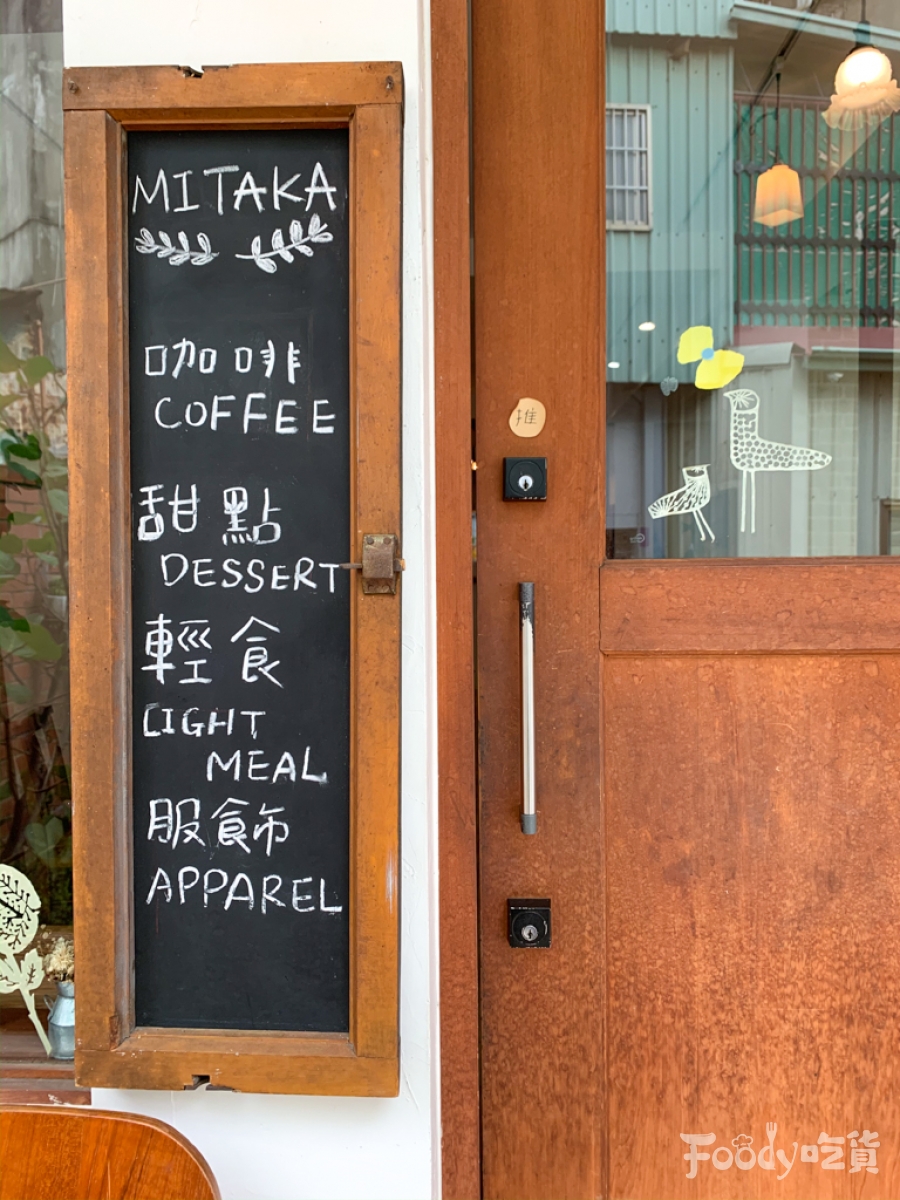 MITAKA
咖啡
COFFEE
甜點
DESSERT
輕食
LIGHT
MEAL
服飾
APPAREL
推
Foody吃貨